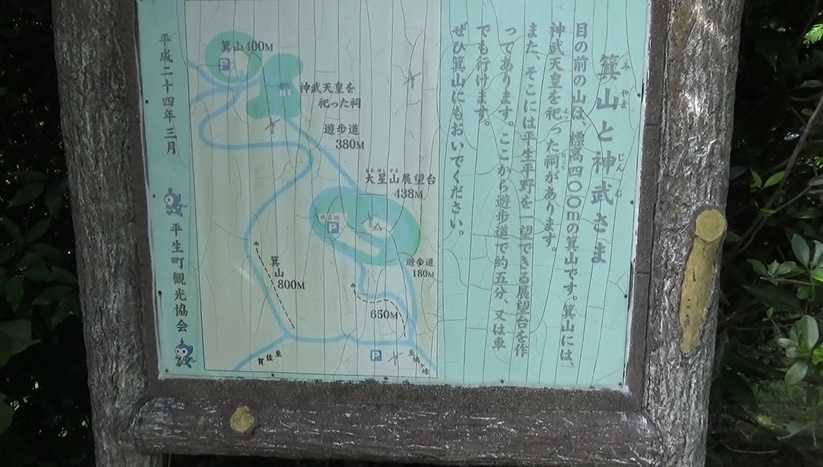 箕山と神武さま
みのやま
じんむ
目の前の山は、標高四〇〇mの箕山です。箕山には、
神武天皇を祀った祠があります。
また、そこには平生平野を一望できる展望台を作
ってあります。ここから遊歩道で約五分、又は車
でも行けます。
ぜひ箕山にもおいでください。
箕山400M
P
神武天皇を
祀った祠
遊歩道
380M
大星山展望台
438M
現在地
P
遊歩道
180M
箕山
800M
650M
P
賀佐至
平成二十四年三月
平生町観光協会